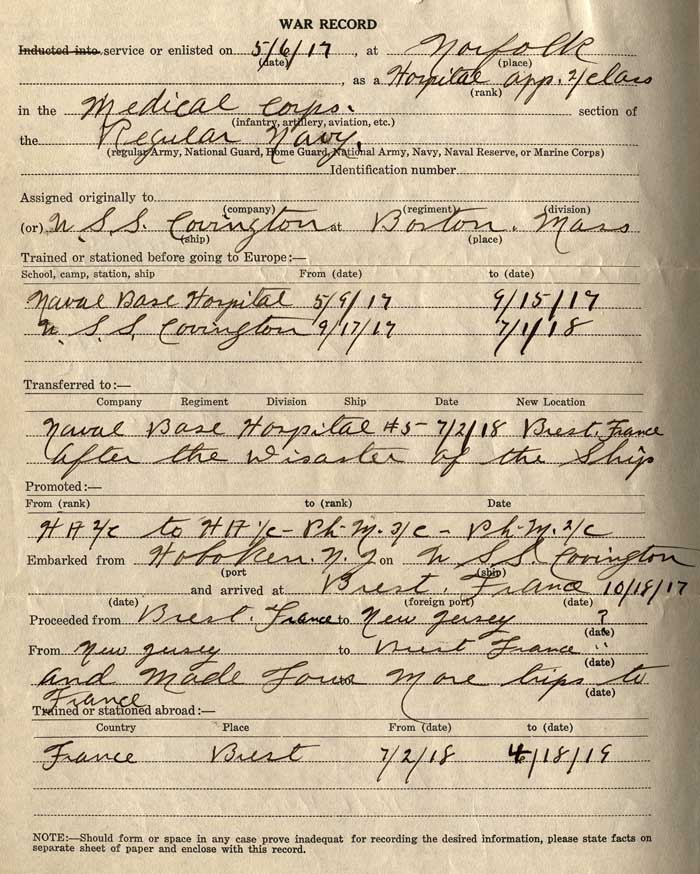 WAR RECORD
Inducted into service or enlisted on 5/6/17, at Norfolk
(date) (place)
, as a Hospital app. 2/class
(rank)
in the Medical Corps. section of
(infantry, artillery, aviation, etc.)
the Regular Navy.
(regular Army, National Guard, Home Guard, National Army, Navy, Naval Reserve, or Marine Corps)
Identification number
Assigned originally to
(company) (regiment) (division)
(or) U.S.S. Covington at Boston. Mass
(ship) (place)
Trained or stationed before going to Europe:—
School, camp, station, ship From (date) to (date)
Naval Base Hospital 5/9/17 9/15/17
U.S.S. Covington 9/17/17 7/1/18
Transferred to:—
Company Regiment Division Ship Date New Location
Naval Base Hospital #5 - 7/2/18 Brest. France
after the Disaster of the Ship
Promoted:—
From (rank) to (rank) Date
HA 2/c to HA 1/c - Ph-M. 3/c - Ph-M. 2/c
Embarked from Hoboken. N.J on U.S.S. Covington
(port (ship)
and arrived at Brest. France 10/18/17
(date) (foreign port) (date)
Proceeded from Brest. France to New Jersey ?
(date)
From New Jersey to Brest France "
(date)
and Made Four to More trips to
(date)
France
Trained or stationed abroad:—
Country Place From (date) to (date)
France Brest 7/2/18 4/18/19
NOTE:—Should form or space in any case prove inadequat for recording the desired information, please state facts on
separate sheet of paper and enclose with this record.